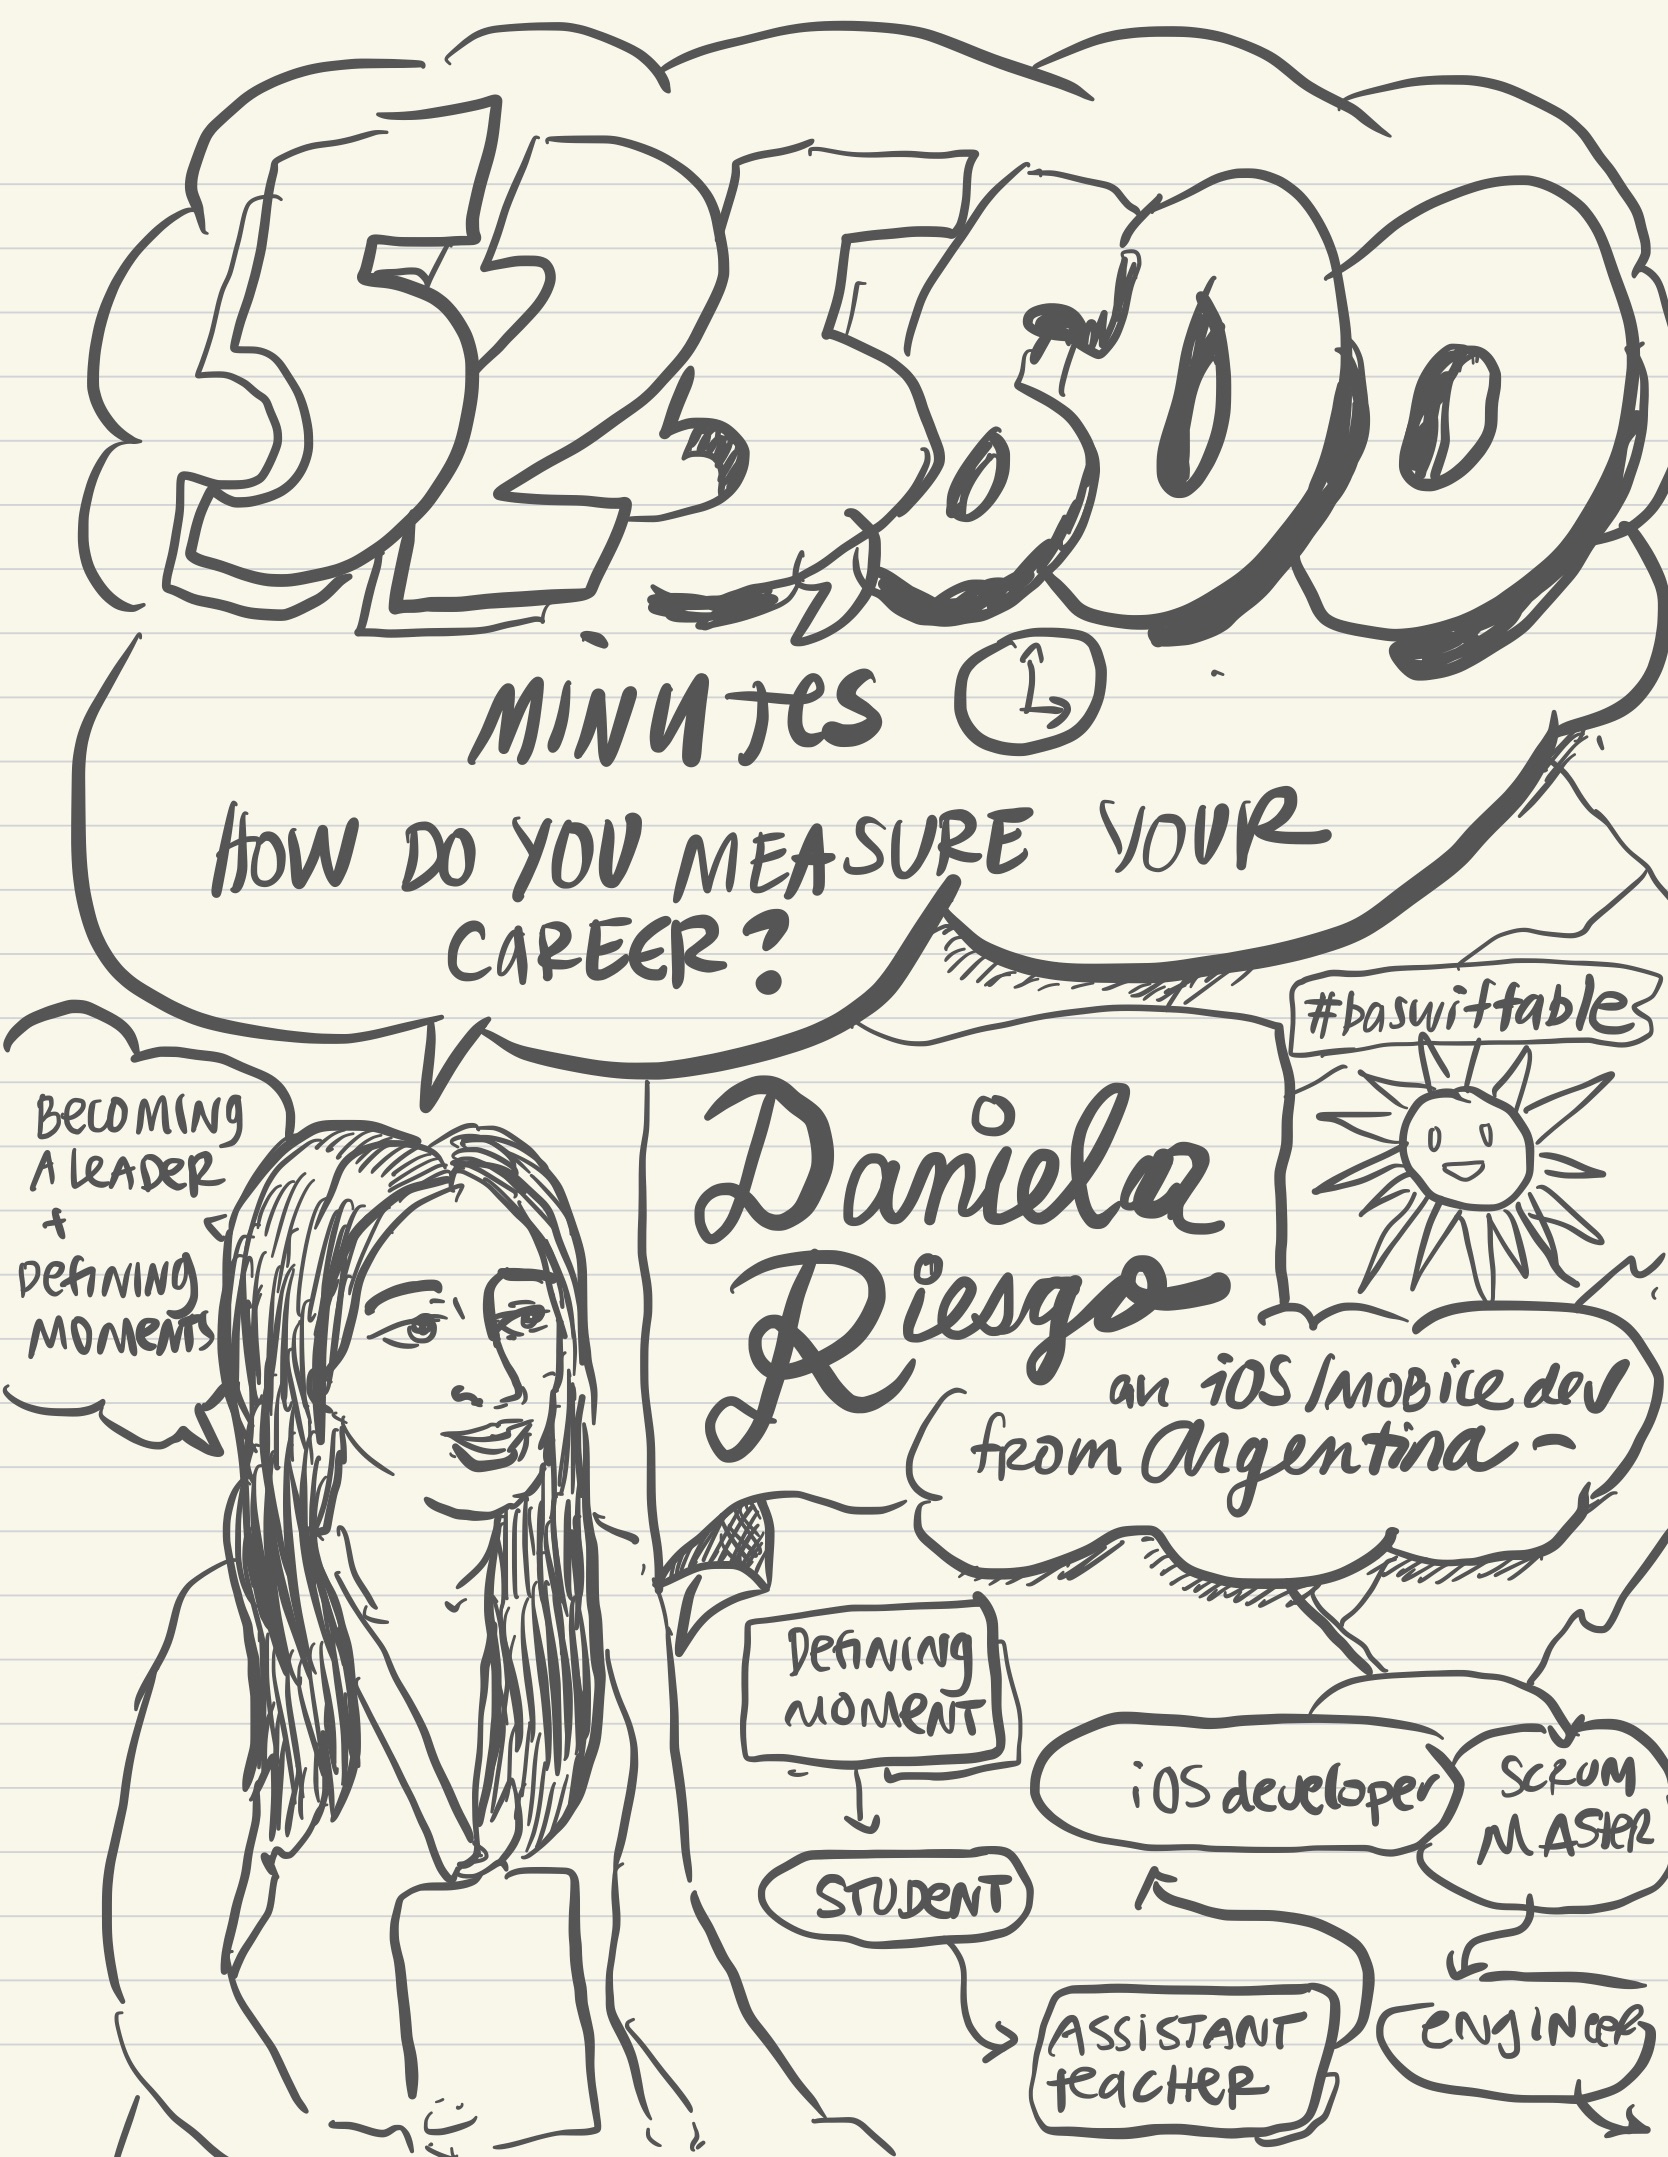 525,600
MINUTES
HOW DO YOU MEASURE YOUR
CAREER?
#baswiftable
BECOMING
A LEADER
+
DEFINING
MOMENTS
Daniela
Riesgo
an iOS/MOBILE dev
from Argentina-
DEFINING
MOMENT
STUDENT
ASSISTANT
TEACHER
iOS developer
SCRUM
MASTER
ENGINEER